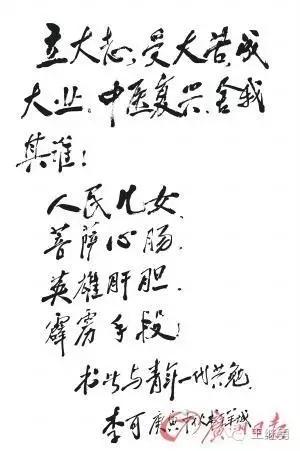 立大志,受大苦,成
大业。中医复兴,舍我
其谁!
人民儿女,
菩萨心肠,
英雄肝胆,
霹雳手段!
书此与青年一代共勉.
李可 庚寅 秋 羊城
广州日报
王继勇